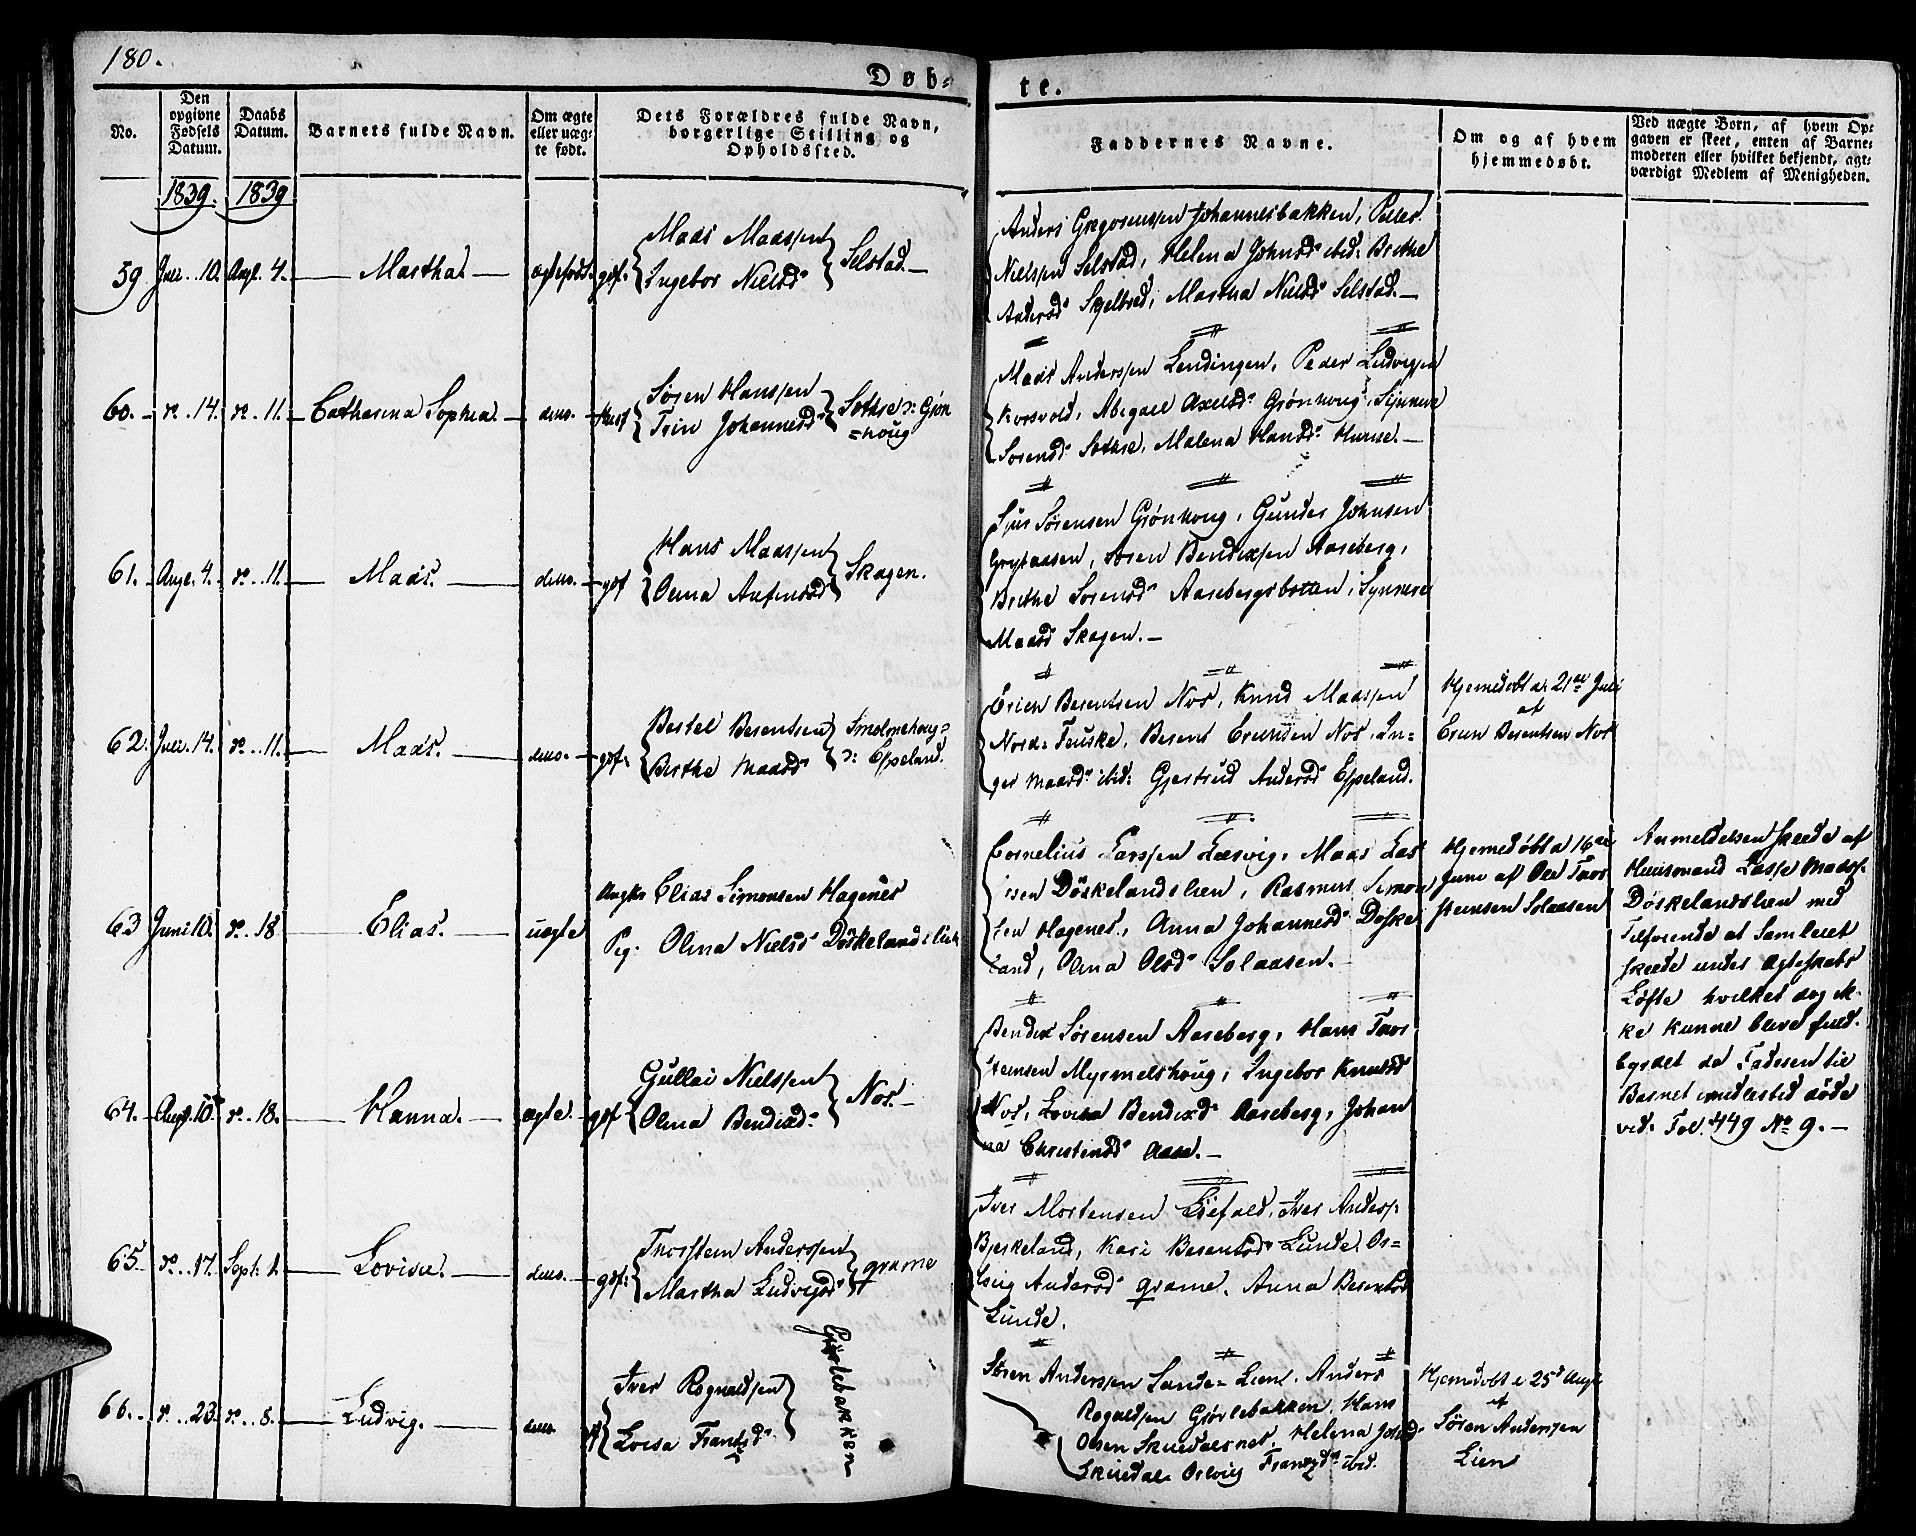 180.
Døb-
te.
No.
Den opgivne Fødsels Datum.
Daabs Datum.
Barnets fulde Navn.
Om ægte eller uæg-te født.
Dets Forældres fulde Navn, borgerlige Stilling og Opholdssted.
Faddernes Navne.
Om og af hvem hjemmedøbt.
Ved uægte Børn, af hvem Op-gaven er skeet, enten af Barne-moderen eller hvilket bekjendt, agt-værdigt Medlem af Menigheden.
1839. 1839
59. Juli. 10. Aug. 4. Martha. ægtefødt. gdf:
Mads Madssen
Ingebor Nielsd
Selstad.
Anders Gregoriussen Johannesbakken, Peder
Nielssen Selstad, Helena Johnsd ibid: Brithe
Andersd Skjelbred, Martha Nielsd Selstad.
60. d. 14. d. 11. Catharina Sophia. dito. Huusf
Søren Hanssen
Trin Johannesd
Sothre : Grjøn
=houg
Mads Anderssen Lendingen, Peder Ludvigsen
Korsvold, Abigael Axelsd Grønhoug, Synneve
Sørensd Sothre, Malena Hansd
61. Aug. 4. d. 11. Mads. dito. gdf
Hans Madssen
Olina
Skagen.
Sjur Sørensen Grønhoug, Gunder Johnsen
Grytaasen, Søren Bendixsen Aaseberg,
Brithe Sørensd Aasebergsbotten, Synneve
Madsd Skagen.
62. Juli. 14. d. 11. Mads. dito. gdf:
Bertel Berentsen
Birthe Madsd
: Eppeland.
Erich Berentsen Nos, Knud Madssen
Nord= , Berent Erichsen Nos, In=
ger Madsd ibid: Gjertrud Andersd Eppeland.
Hjemedøbt d. 21de Juli
af
Erich Berentsen Nos
63 Juni 10. d. 18 Elias. uægte
Ungkr Elias Simonsen Hagenes
Pig: Olina Nielsd Døskelandslien
Cornelius Larssen Læsvig, Mads Las
sesen Døskelandslien, Rasmus Simon
sen Hagenes, Anna Johannesd Døske
land, Olina Olsd Solaasen.
Hjemedøbt d 16de
Juni af Ole Thor
stensen Solaasen
Anmeldelsen skeede af
Huusmand Lasse Madss.
Døskelandslien med
Tilføiende at Samleiet
skeede under Ægteskabs
Løfte hvilket dog ik-
ke kunne blive fuld-
byrdet da Faderen til
Barnet imidlertid døde
vid. Fol. 449 No 9.
64. Aug. 10. d. 18. Hanna. ægte. gdf
Gullei Nielssen
Olina Bendixd
Nos.
Bendix Sørensen Aaseberg, Hans Thor
stensen Myrmelshoug, Ingebor Knudsd
Nos, Lovisa Bendixd Aaseberg, Johan
na Christensd Aase.
65. d. 17. Sept. 1. Lovise. dito. gdf:
Thorstein Anderssen
Martha Ludvigsd
Qvame
Iver Mortensen Liefald, Iver Anderss:
Bjerkeland, Kari Berentsd Lunde, Os=
lvig Andersd Qvame. Anna Berentsd
Lunde.
66. d. 23. d. 8. Ludvig. dito. gf
Iver Rognaldsen
Lovisa Frantzd
Gjørlebakken
Søren Anderssen Sande= Lien, Anders
Rognaldsen Gjørlebakken, Hans
Olsen Skiredalsnes, Helena Johsd
Skiredal, Oslvig Frantzd ibid.
Hjemedøbt d 25d Aug.
af
Søren Anderssen
Lien